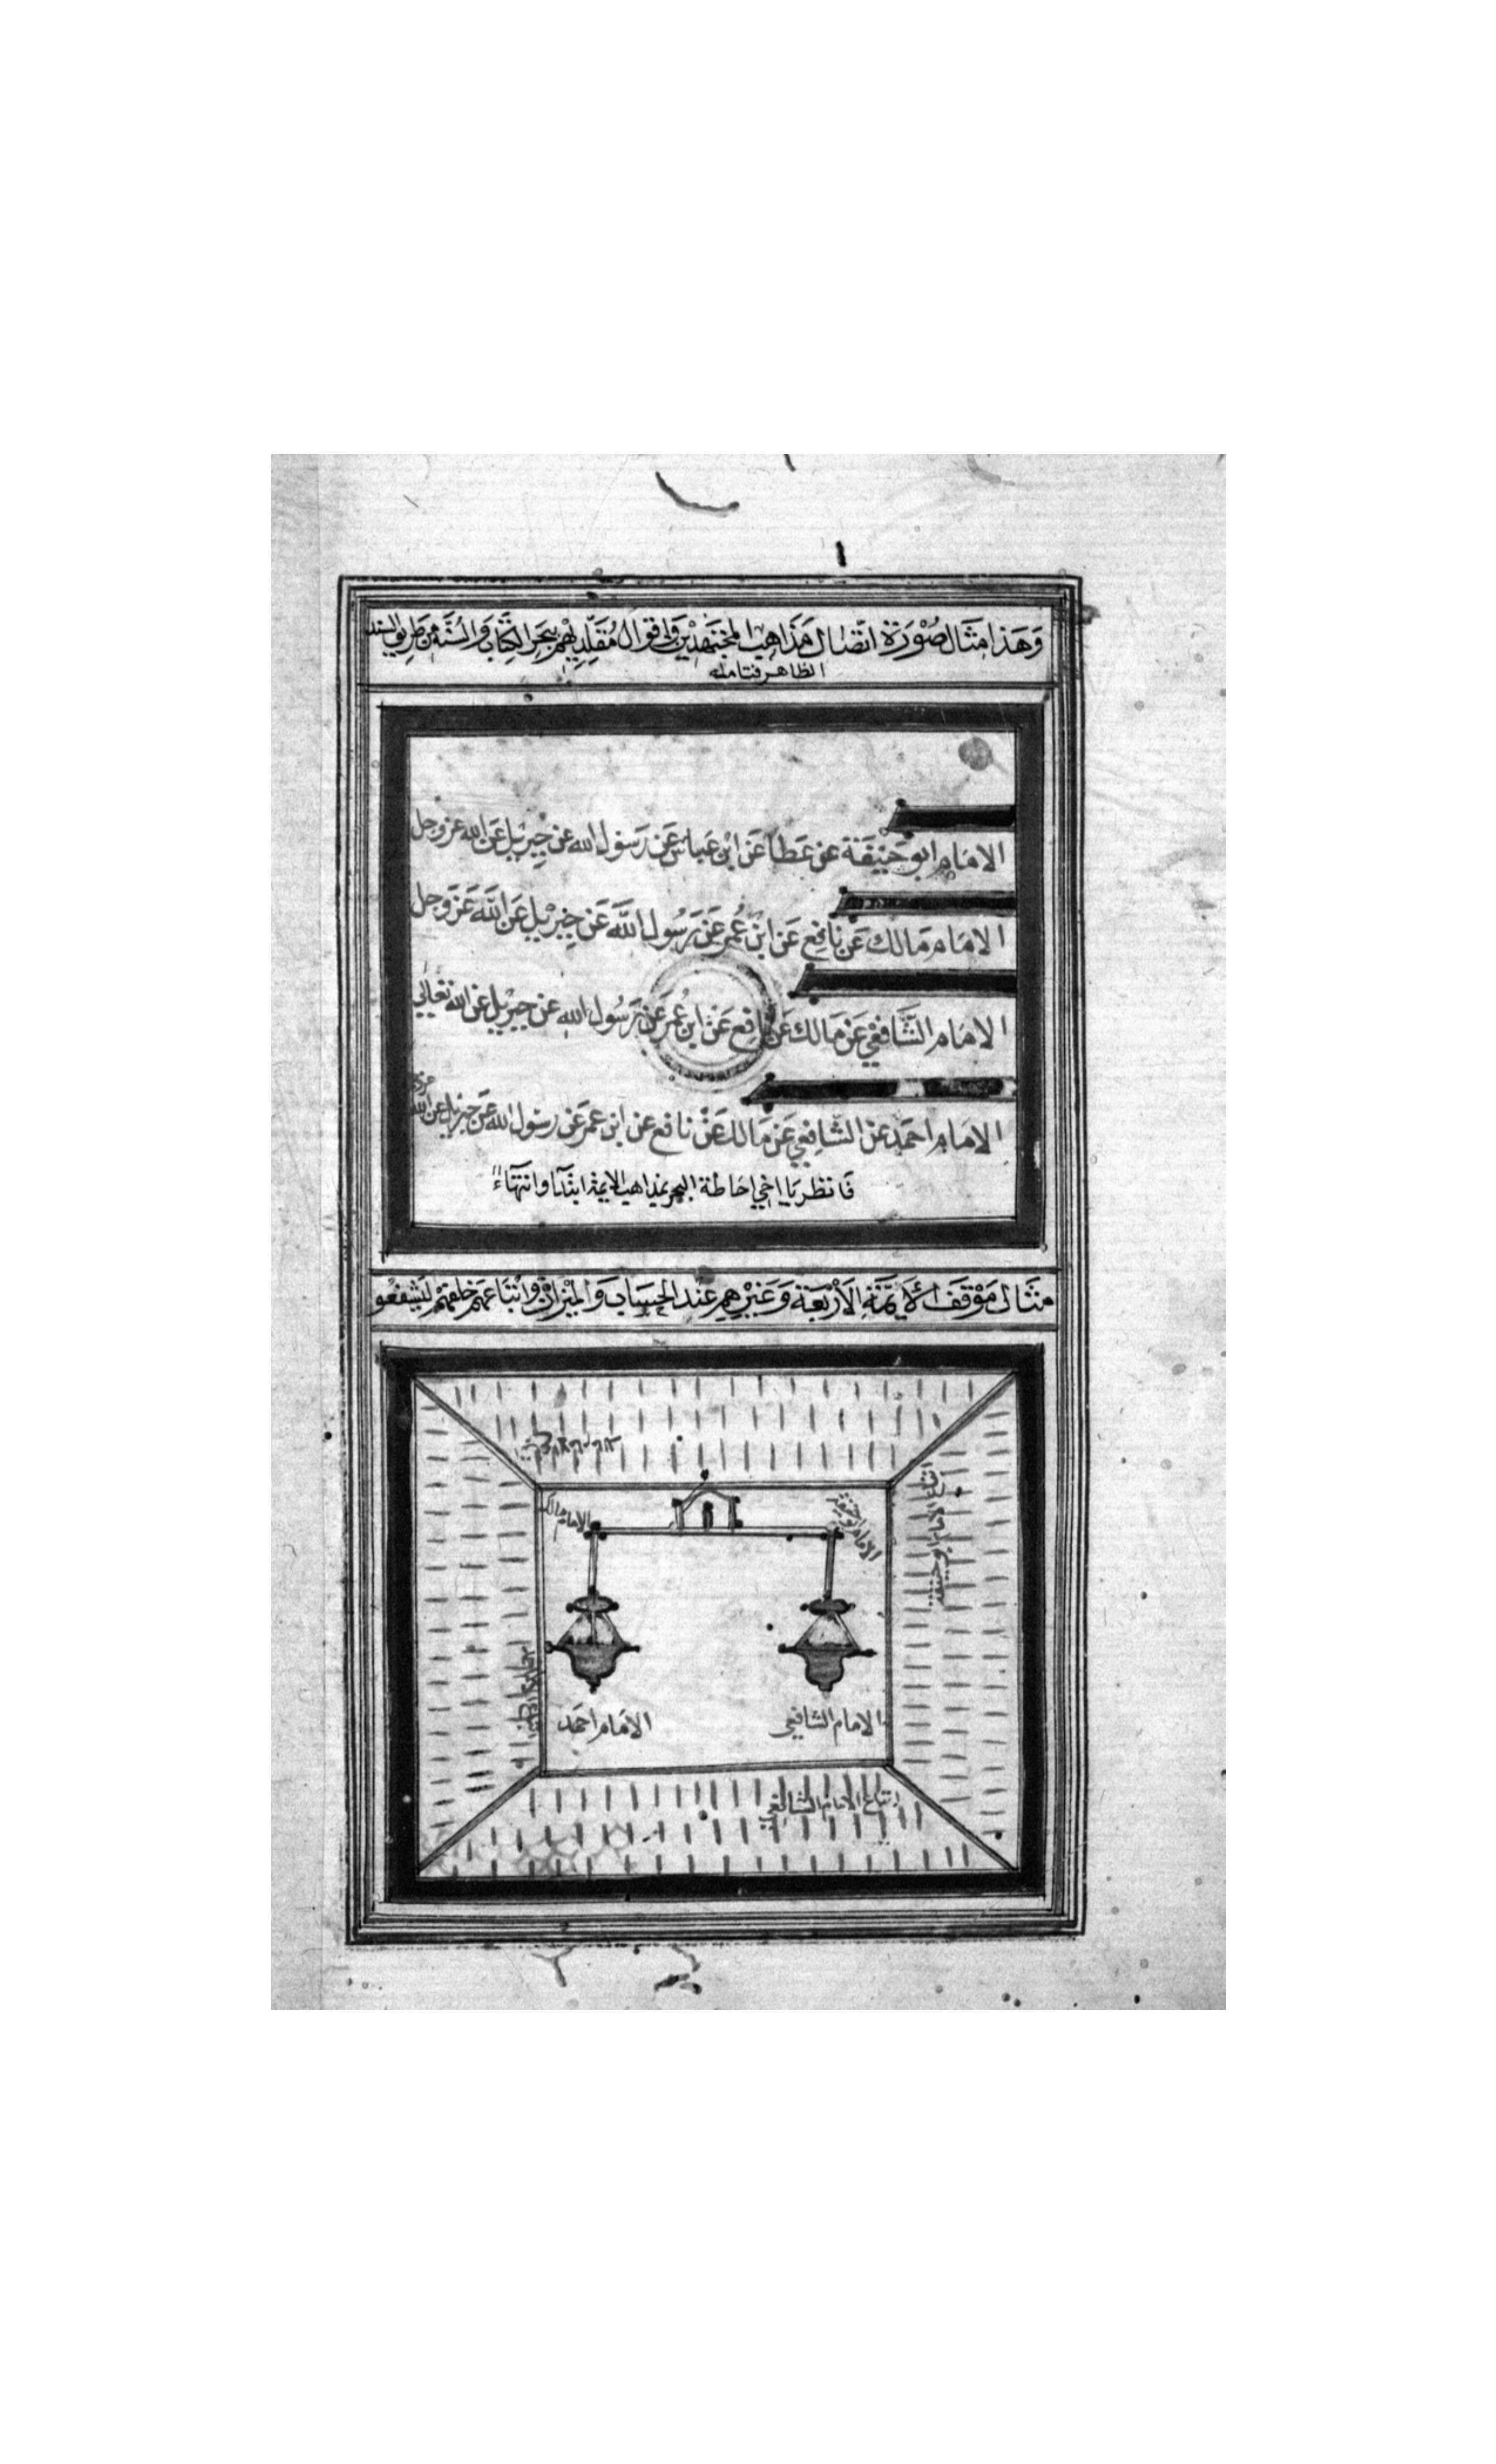 وَهَذا مثَال صُوْرَة اتّصَال مَذَاهِب المجتَهدِينَ وَاقوَال مُقَلِّدِيْهم بِبَحر الكِتَاب وَالسُنَّة مِن طَرِيق السند
الظاهر فتامله
الامَام ابو حَنِيفَة عن عَطا عَن ابن عَباس عَن رَسُول الله عن جِبرِيل عَن الله عز وجل
الامَام مَالك عَن نافِع عَن ابن عُمر عَن رَسُول اللَّه عَن جِبرِيل عَن اللَّه عَزّ وَجل
الامَام الشَّافعِي عَن مَالك عَن نافِع عَن ابن عُمَر عَن رَسُول الله عن جبرِيل عن الله تعَالي
الامَام احمَد عَن الشَافِعِي عَن مَالك عَن نافع عن ابن عمر عَن رسُول الله عَن جبرِيل عن الله
فَانظر يَا اخي احَاطة البحر بمذاهب الايمة ابتدآ وانتهآءً
مثَال مَوْقف الأَيمّة الأَرْبَعَة وَغَيْرِهِم عنْد الحسَاب وَالمِيْزان وَاتْبَاعهم خلفهم ليَشفعُو
الامام مالك
الامام ابو حنيفة
اتباع الامام ابو حنيفة
الامام الشافعي
الامَام احمَد
اتباع الامام الشافعي